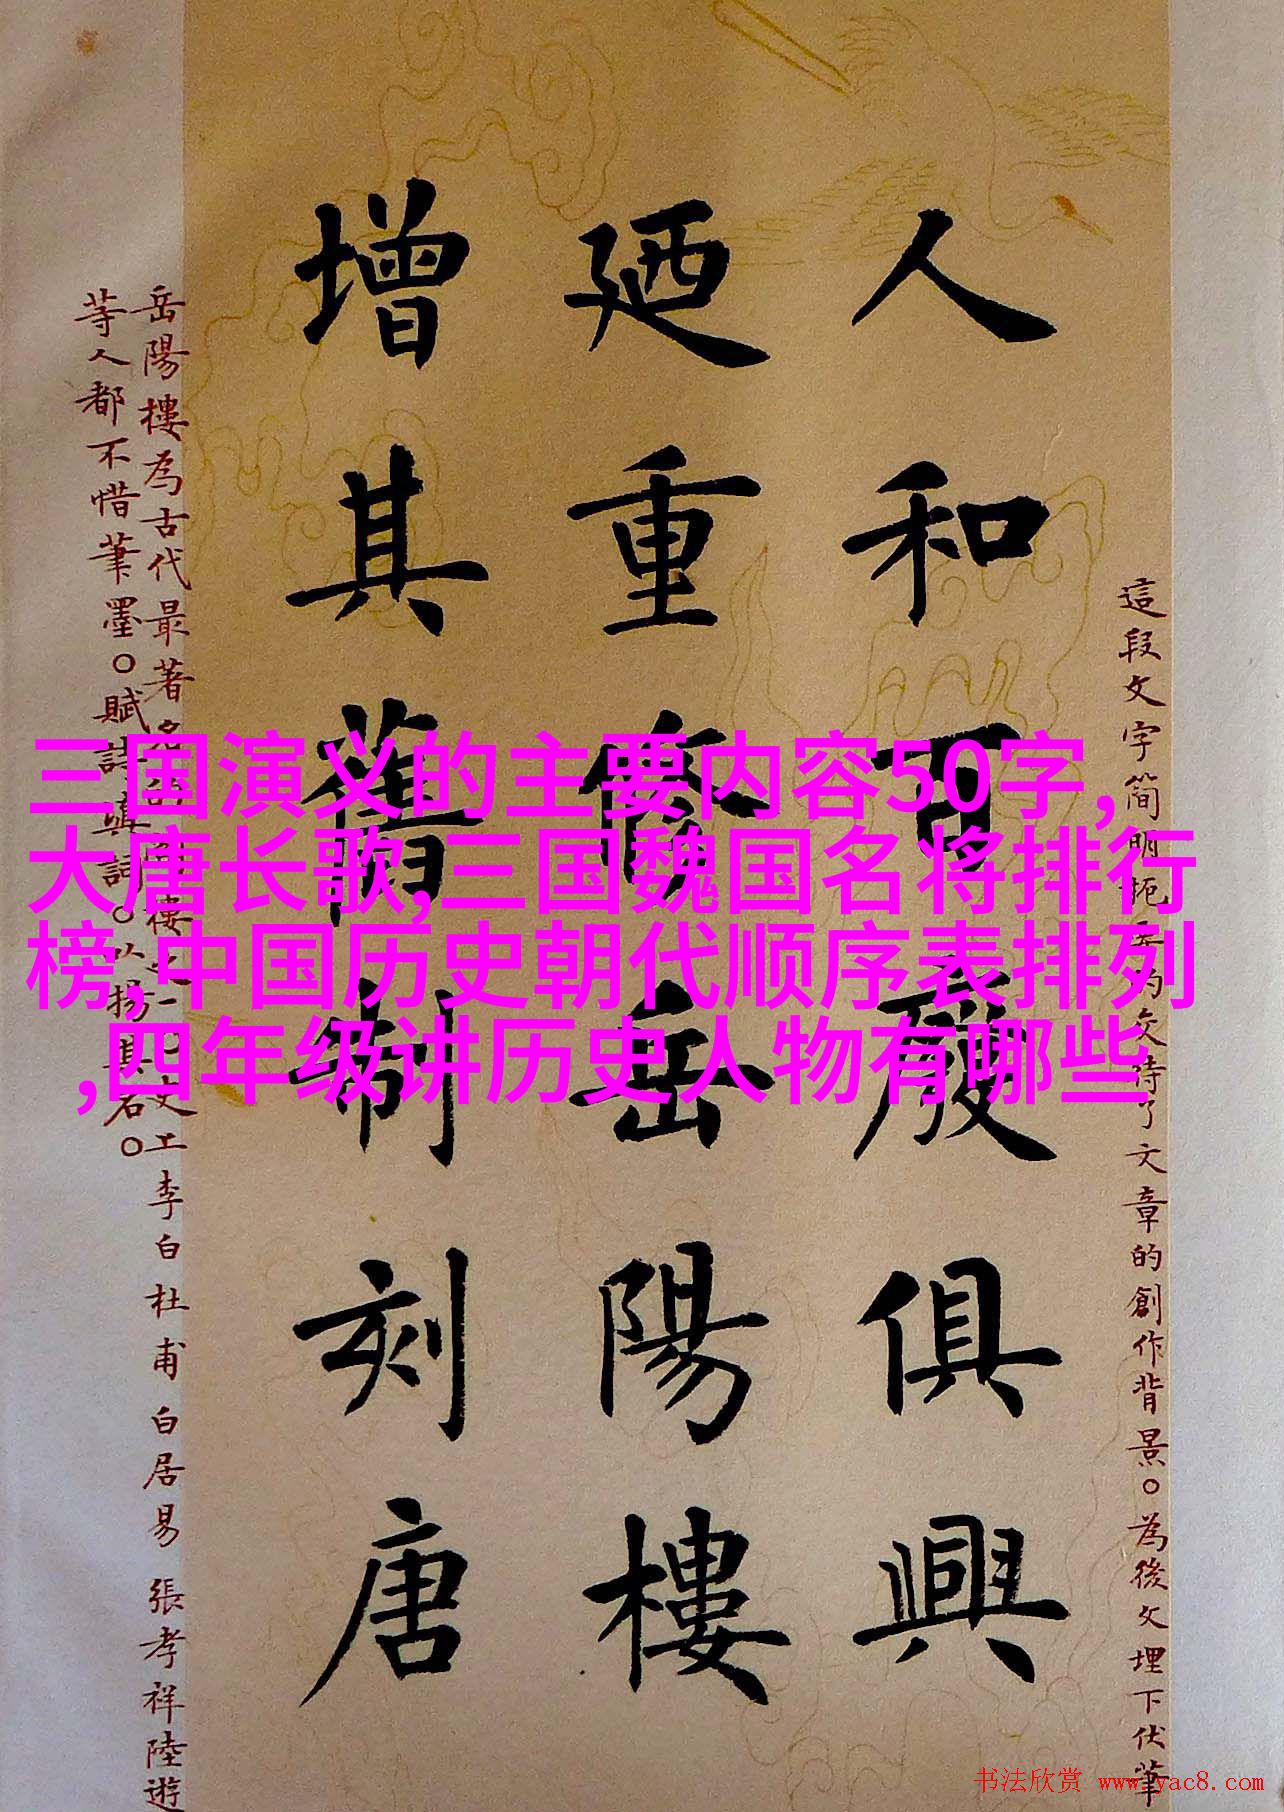 這段文字简明扼要的交待了文章的創作背景。為後文埋下伏筆
人和百廢俱興
廼重修岳陽樓
增其舊制刻唐
岳陽樓為古代最著名樓之一文工李白杜甫白居易張孝祥陸遊
等人都不惜筆墨。賦詩填詞。以揚其名。
三国演义的主要内容50字,
大唐长歌,三国魏国名将排行
榜,中国历史朝代顺序表排列
,四年级讲历史人物有哪些
书法欣赏 www.yac8.com